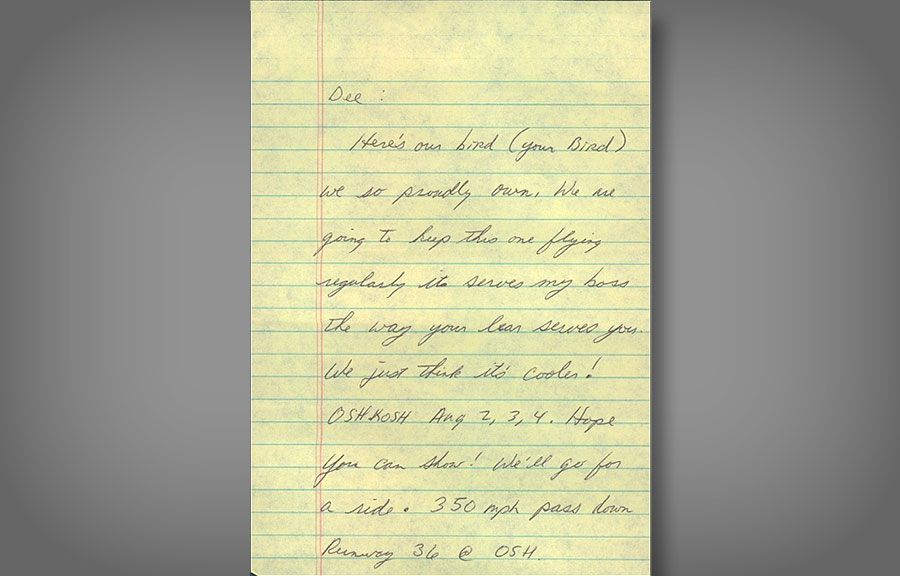 Dee :
Here's our bird (your Bird)
we so proudly own. We are
going to keep this one flying
regularly its serves my boss
the way your lear serves you.
We just think it's cooler!
OSHKOSH Aug 2, 3, 4. Hope
you can show! We'll go for
a ride. 350 mph pass down
Runway 36 @ OSH.